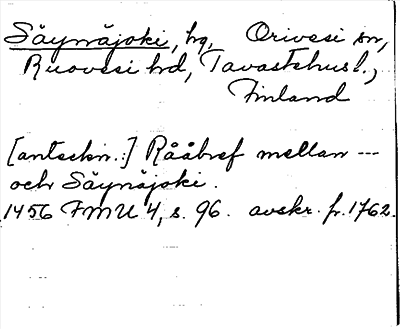 Säynäjoki, hg, Orivesi sn,
Ruovesi hd, Tavastehusl.,
Finland
[anteckn.:] Rååbref mellan ---
och Säynäjoki.
1456 FMU 4, s. 96. avskr. fr. 1762.